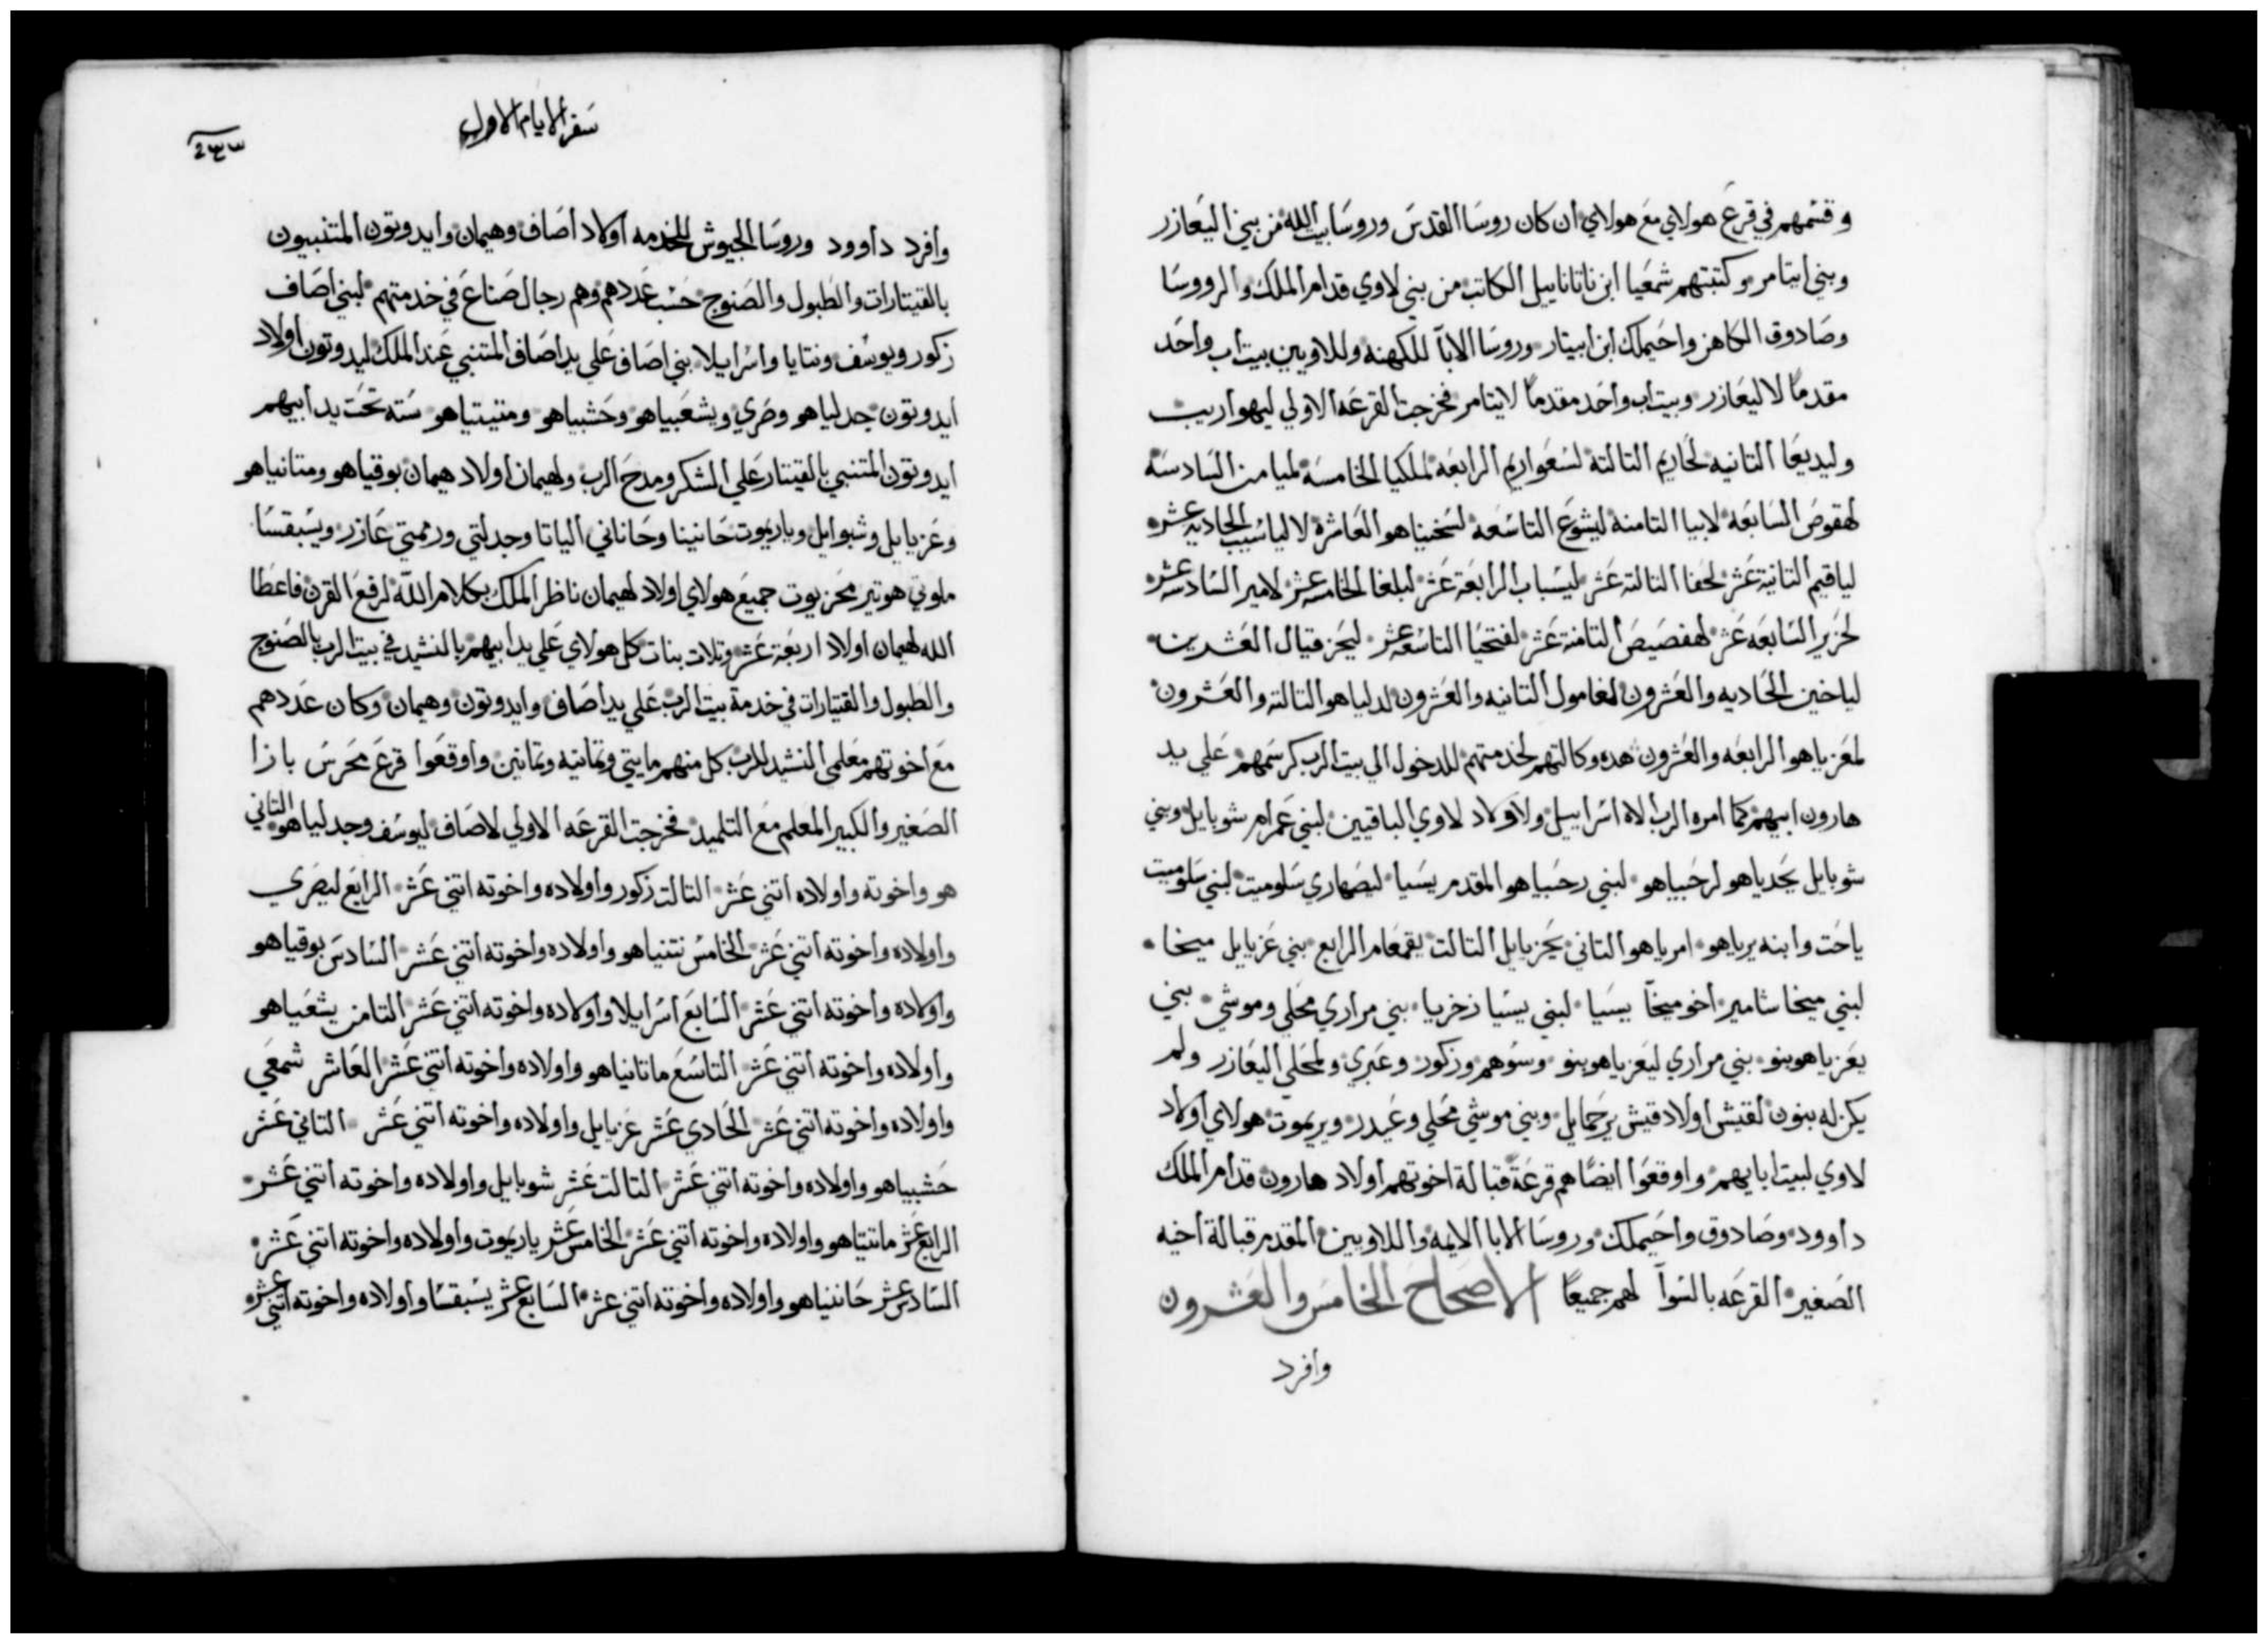 وقسمهم في قرع هولاي مع هولاي ان كان روسا القدس وروسا بيت الله من بني اليعازر
وبني ايتامر وكتبتهم شمعيا ابن ناتاناييل الكاتب من بني لاوي قدام الملك والرووسا
وصادوق الكاهن واحيملك ابن ابيتار وروسا الابا للكهنه وللاويين بيت اب واحد
مقدما لاليعازر وبيت اب واحد مقدما لايتامر فخرجت القرعه الاولي ليهواريب
وليديعا التانيه لحاريم التالته لسعواريم الرابعه لملكيا الخامسه لميامن السادسه
لهقوص السابعه لابيا التامنه ليشوع التاسعه لسخنياهو العاشره لالياسيب الحاديه عشره
لياقيم التانية عشر لحفا التالته عشر ليسباب الرابعة عشر لبلغا الخامسه عشر لامير السادسه عشر
لحزير السابعه عشر لهفصيص التامنة عشر لفتحيا التاسعه عشر ليحزقيال العشرين
لياخين الحاديه والعشرون لغامول التانيه والعشرون لدلياهو التالته والعشرون
لمعزياهو الرابعه والعشرون هده وكالتهم لخدمتهم للدخول الي بيت الرب كرسمهم علي يد
هارون ابيهم كما امره الرب الاه اسراييل ولاولاد لاوي الباقيين لبني عمرام شوبايل وبني
شوبايل يحدياهو لرحبياهو لبني رحبياهو المقدم يسيا ليصهاري سلوميت لبني سلوميت
ياحت وابنه يرياهو امرياهو التاني يحزيايل التالت يقمعام الرابع بني عزيايل ميخا
لبني ميخا شامير اخو ميخا يسيا لبني يسيا زخريا بني مراري محلي وموشي بني
يعزياهو بنو بني مراري ليعزياهو بنو وسوهم وزكور وعبري ولمحلي اليعازر ولم
يكن له بنون لقيش اولاد قيش يرحمايل وبني موشي محلي وعيدر ويريموت هولاي اولاد
لاوي لبيت ابايهم واوقعوا ايضا هم قرعة قبالة اخوتهم اولاد هارون قدام الملك
داوود وصادوق واحيملك وروسا الابا الايمه واللاويين المقدم قبالة اخيه
الصغير القرعه بالسوآ لهم جميعا الاصحاح الخامس والعشرون
وافرد
سفر الايام الاول
٢٣٣
وافرد داوود وروسا الجيوش للخدمه اولاد اصاف وهيمان وايدوتون المتنبيون
بالقيتارات والطبول والصنوج حسب عددهم وهم رجال صناع في خدمتهم لبني اصاف
زكور ويوسف ونتايا واسراييلا بني اصاف علي يد اصاف المتنبي عند الملك ليدوتون اولاد
ايدوتون جدلياهو وصري ويشعبياهو وحشبياهو ومتيتياهو سته تحت يد ابيهم
ايدوتون المتنبي بالقيتار علي الشكر ومدح الرب ولهيمان اولاد هيمان بوقياهو ومتانياهو
وعزيايل وشبوايل وياريموت حانينا وحاناني الياتا وجدلتي ورممتي عازر ويسبقسا
ملوتي هوتير محزيوت جميع هولاي اولاد لهيمان ناظر الملك بكلام الله لرفع القرن فاعطا
الله لهيمان اولاد اربعة عشر وتلات بنات كل هولاي علي يد ابيهم بالنشيد في بيت الرب بالصنوج
والطبول والقيتارات في خدمة بيت الرب علي يد اصاف وايدوتون وهيمان وكان عددهم
مع اخوتهم معلمي النشيد للرب كل منهم مايتي وتمانيه وتمانين واوقعوا قرع محرس بازا
الصغير والكبير المعلم مع التلميد فخرجت القرعه الاولي لاصاف ليوسف وجدلياهو التاني
هو واخوته واولاده اتني عشر التالت زكور واولاده واخوته اتني عشر الرابع ليصري
واولاده واخوته اتني عشر الخامس نتنياهو واولاده واخوته اتني عشر السادس بوقياهو
واولاده واخوته اتني عشر السابع اسرايلا واولاده واخوته اتني عشر التامن يشعياهو
واولاده واخوته اتني عشر التاسع ماتانياهو واولاده واخوته اتني عشر العاشر شمعي
واولاده واخوته اتني عشر الحادي عشر عزيايل واولاده واخوته اتني عشر التاني عشر
حشبياهو واولاده واخوته اتني عشر التالت عشر شوبايل واولاده واخوته اتني عشر
الرابع عشر ماتتياهو واولاده واخوته اتني عشر الخامس عشر ياريموت واولاده واخوته اتني عشر
السادس عشر حاننياهو واولاده واخوته اتني عشر السابع عشر يسبقسا واولاده واخوته اتني عشره